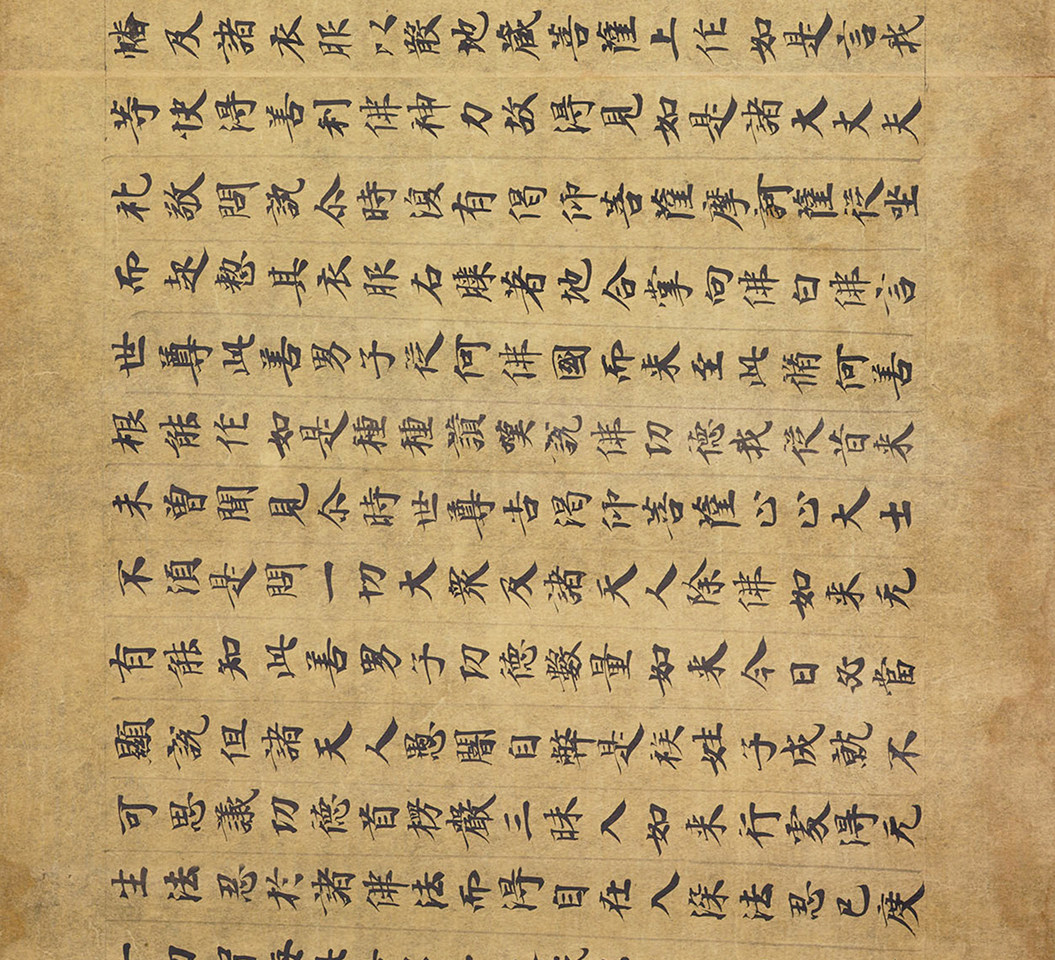 幡及諸衣服以散地藏菩薩上作如是言我
等快得善利佛神力故得見如是諸大丈夫
礼敬問說尒時復有偈仰菩薩摩訶薩從坐
而起整其衣服右膝著地合掌向佛白佛言
世尊此善男子從何佛國而来至此脩何善
根能作如是種種讚嘆說佛功德我從昔来
未曾聞見尒時世尊告渴仰菩薩止止大士
不湏是問一切大衆及諸天人除佛如来无
有能知此善男子功德數量如来今日必當
顯說但諸天人愚闇自弊是族姓子成就不
可思議功德首楞嚴三昧入如来行處得无
生法忍於諸佛法而得自在入深法忍已度